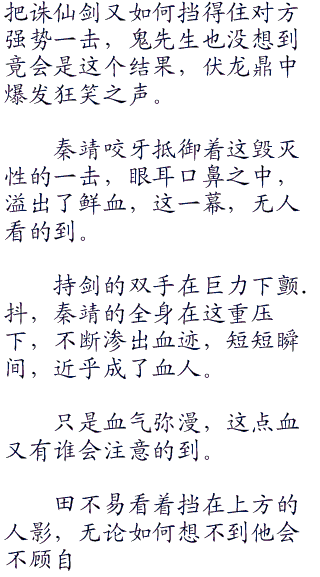 把诛仙剑又如何挡得住对方
强势一击，鬼先生也没想到
竟会是这个结果，伏龙鼎中
爆发狂笑之声。
秦靖咬牙抵御着这毁灭
性的一击，眼耳口鼻之中，
溢出了鲜血，这一幕，无人
看的到。
持剑的双手在巨力下颤.
抖，秦靖的全身在这重压
下，不断渗出血迹，短短瞬
间，近乎成了血人。
只是血气弥漫，这点血
又有谁会注意的到。
田不易看着挡在上方的
人影，无论如何想不到他会
不顾自